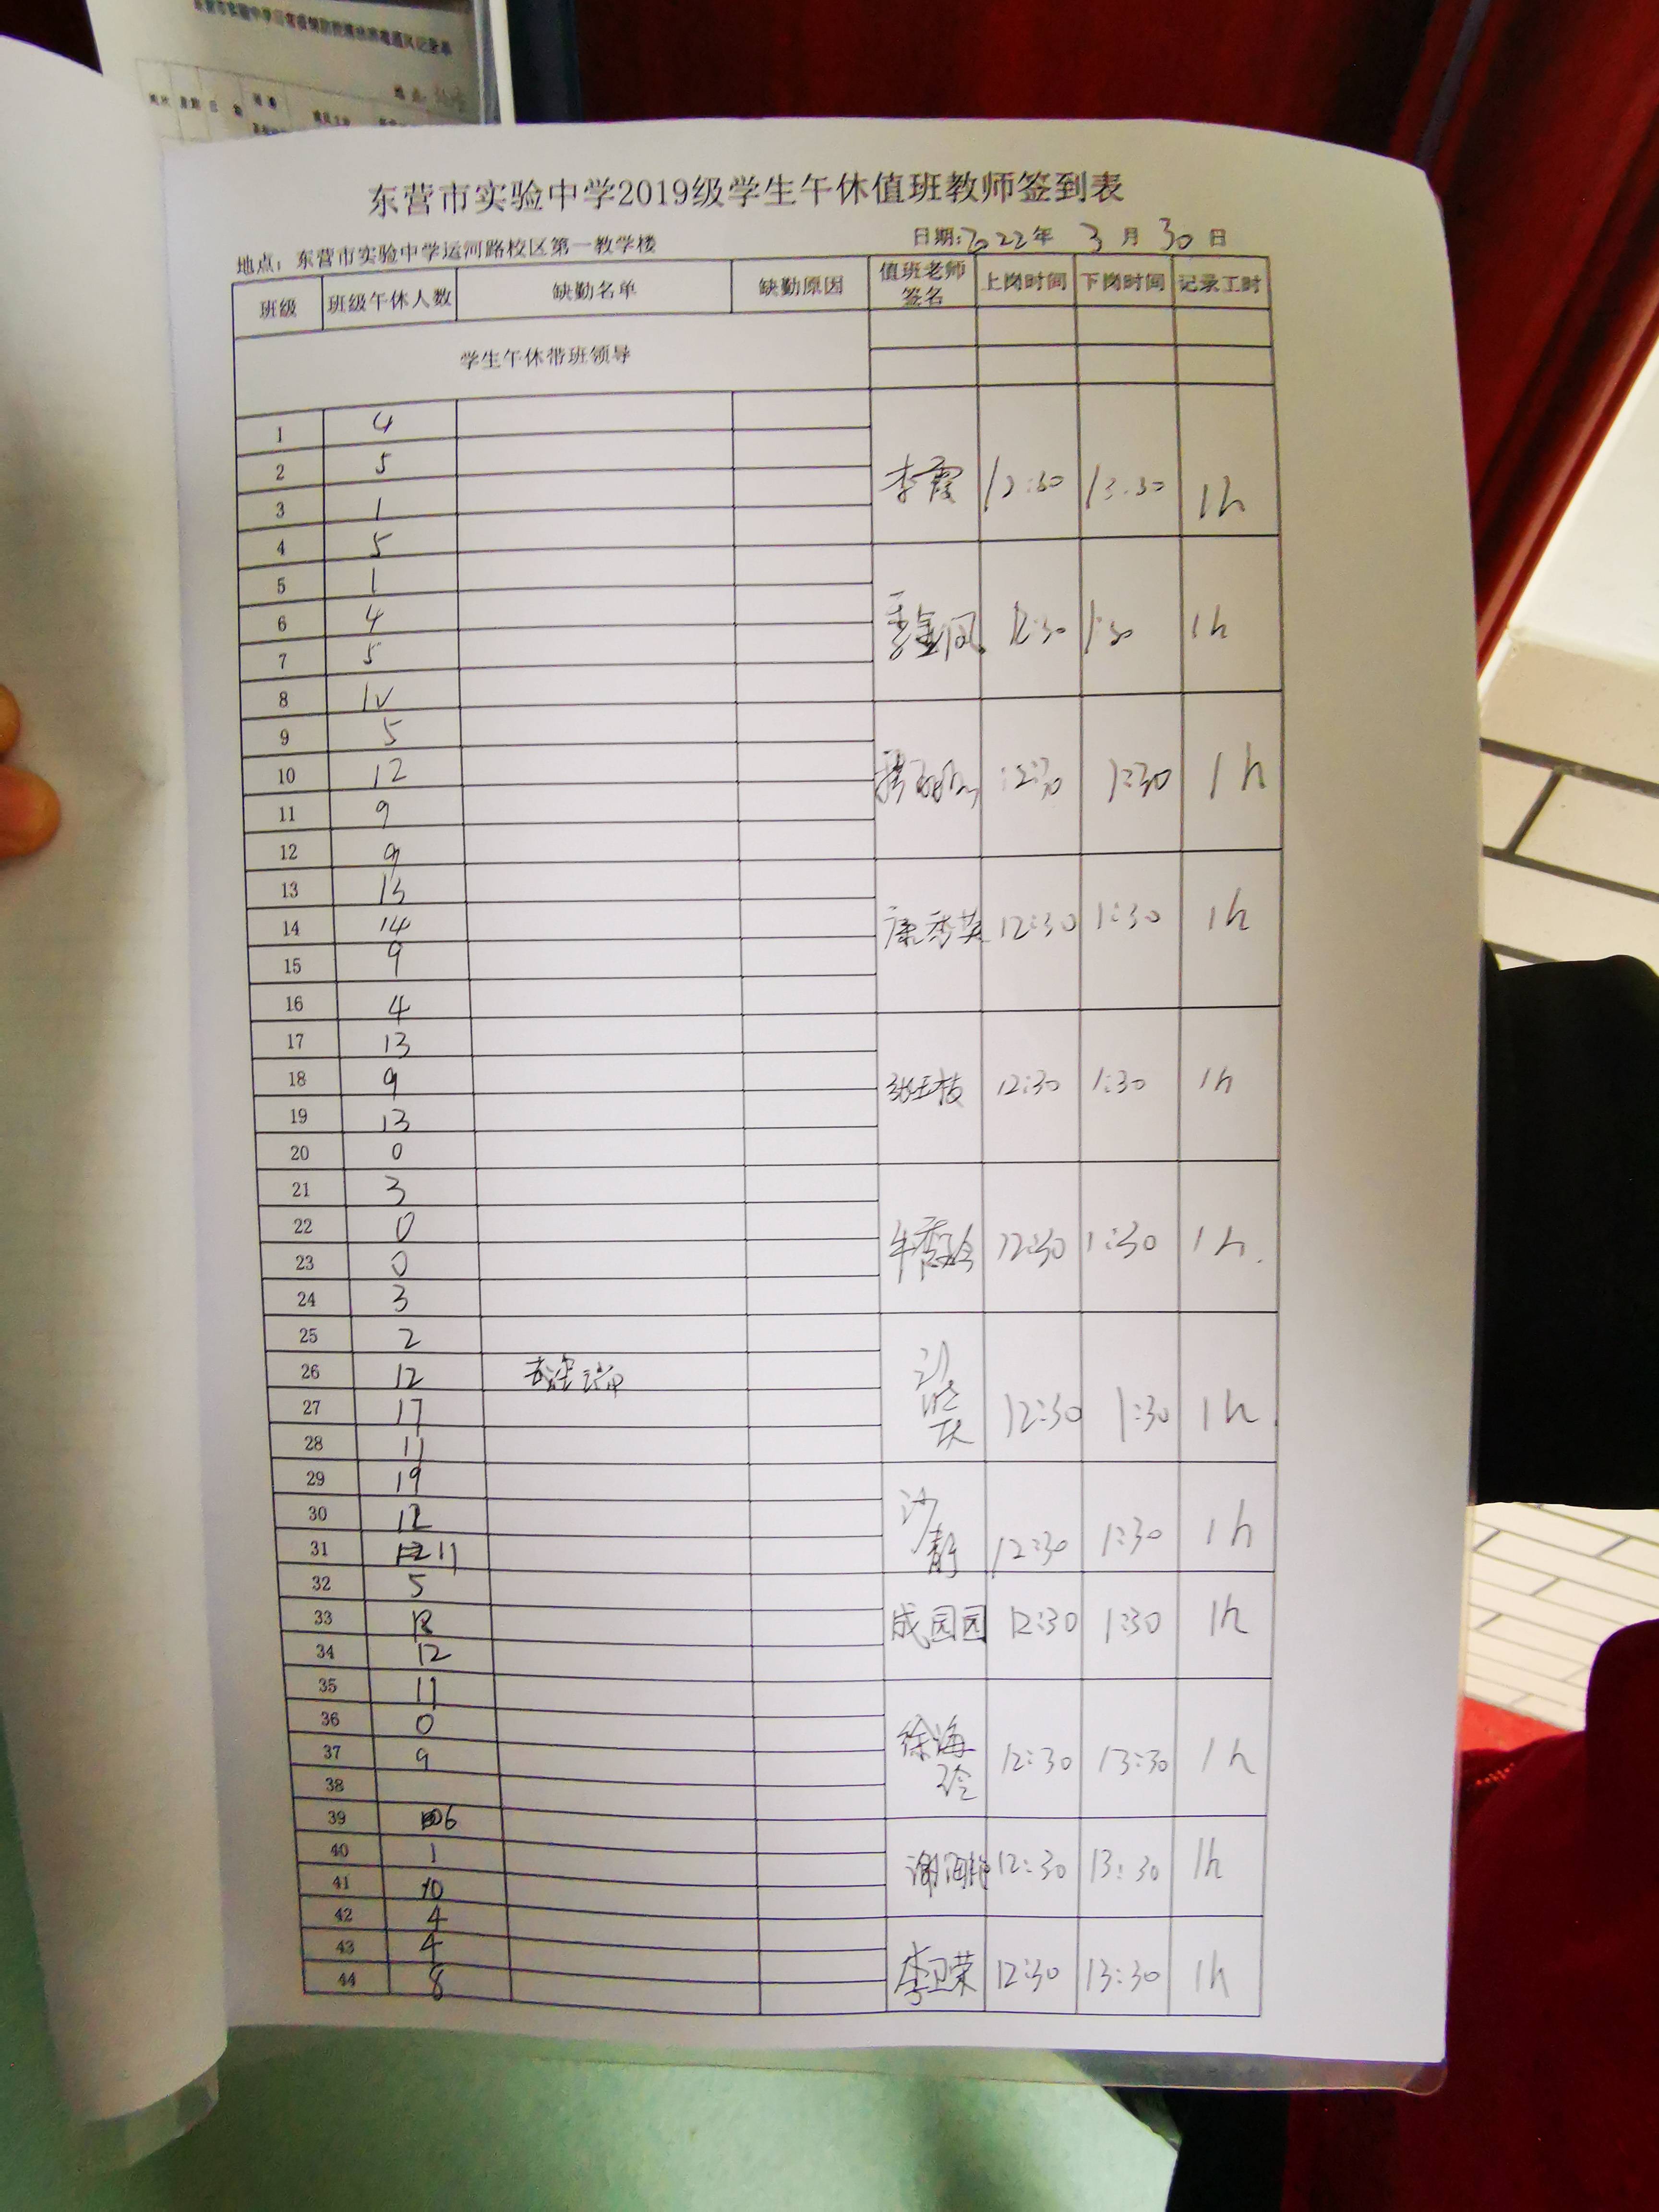 东营市实验中学2019级学生午休值班教师签到表
地点：东营市实验中学运河路校区第一教学楼 日期:2022年 3月 30日
班级 班级午休人数 缺勤名单 缺勤原因 值班老师签名 上岗时间 下岗时间 记录工时
学生午休带班领导
1 4
2 5
李霞 12:30 13:30 1h
3 1
4 5
5 1
6 4
季金凤 12:30 1:30 1h
7 5
8 12
9 5
10 12
12:30 1:30 1h
11 9
12 9
13 13
14 14
康秀英 12:30 1:30 1h
15 9
16 4
17 13
18 9
张玉枝 12:30 1:30 1h
19 13
20 0
21 3
22 0
牛秀玲 12:30 1:30 1h.
23 0
24 3
25 2
26 12
27 17
12:30 1:30 1h
28 11
29 19
30 12
沙静 12:30 1:30 1h
31 11
32 5
33
成园园 12:30 1:30 1h
34 12
35 11
36 0
37 9
徐海玲 12:30 13:30 1h
38
39 6
40 1
12:30 13:30 1h
41 10
42 4
43 4
李卫荣 12:30 13:30 1h
44 8